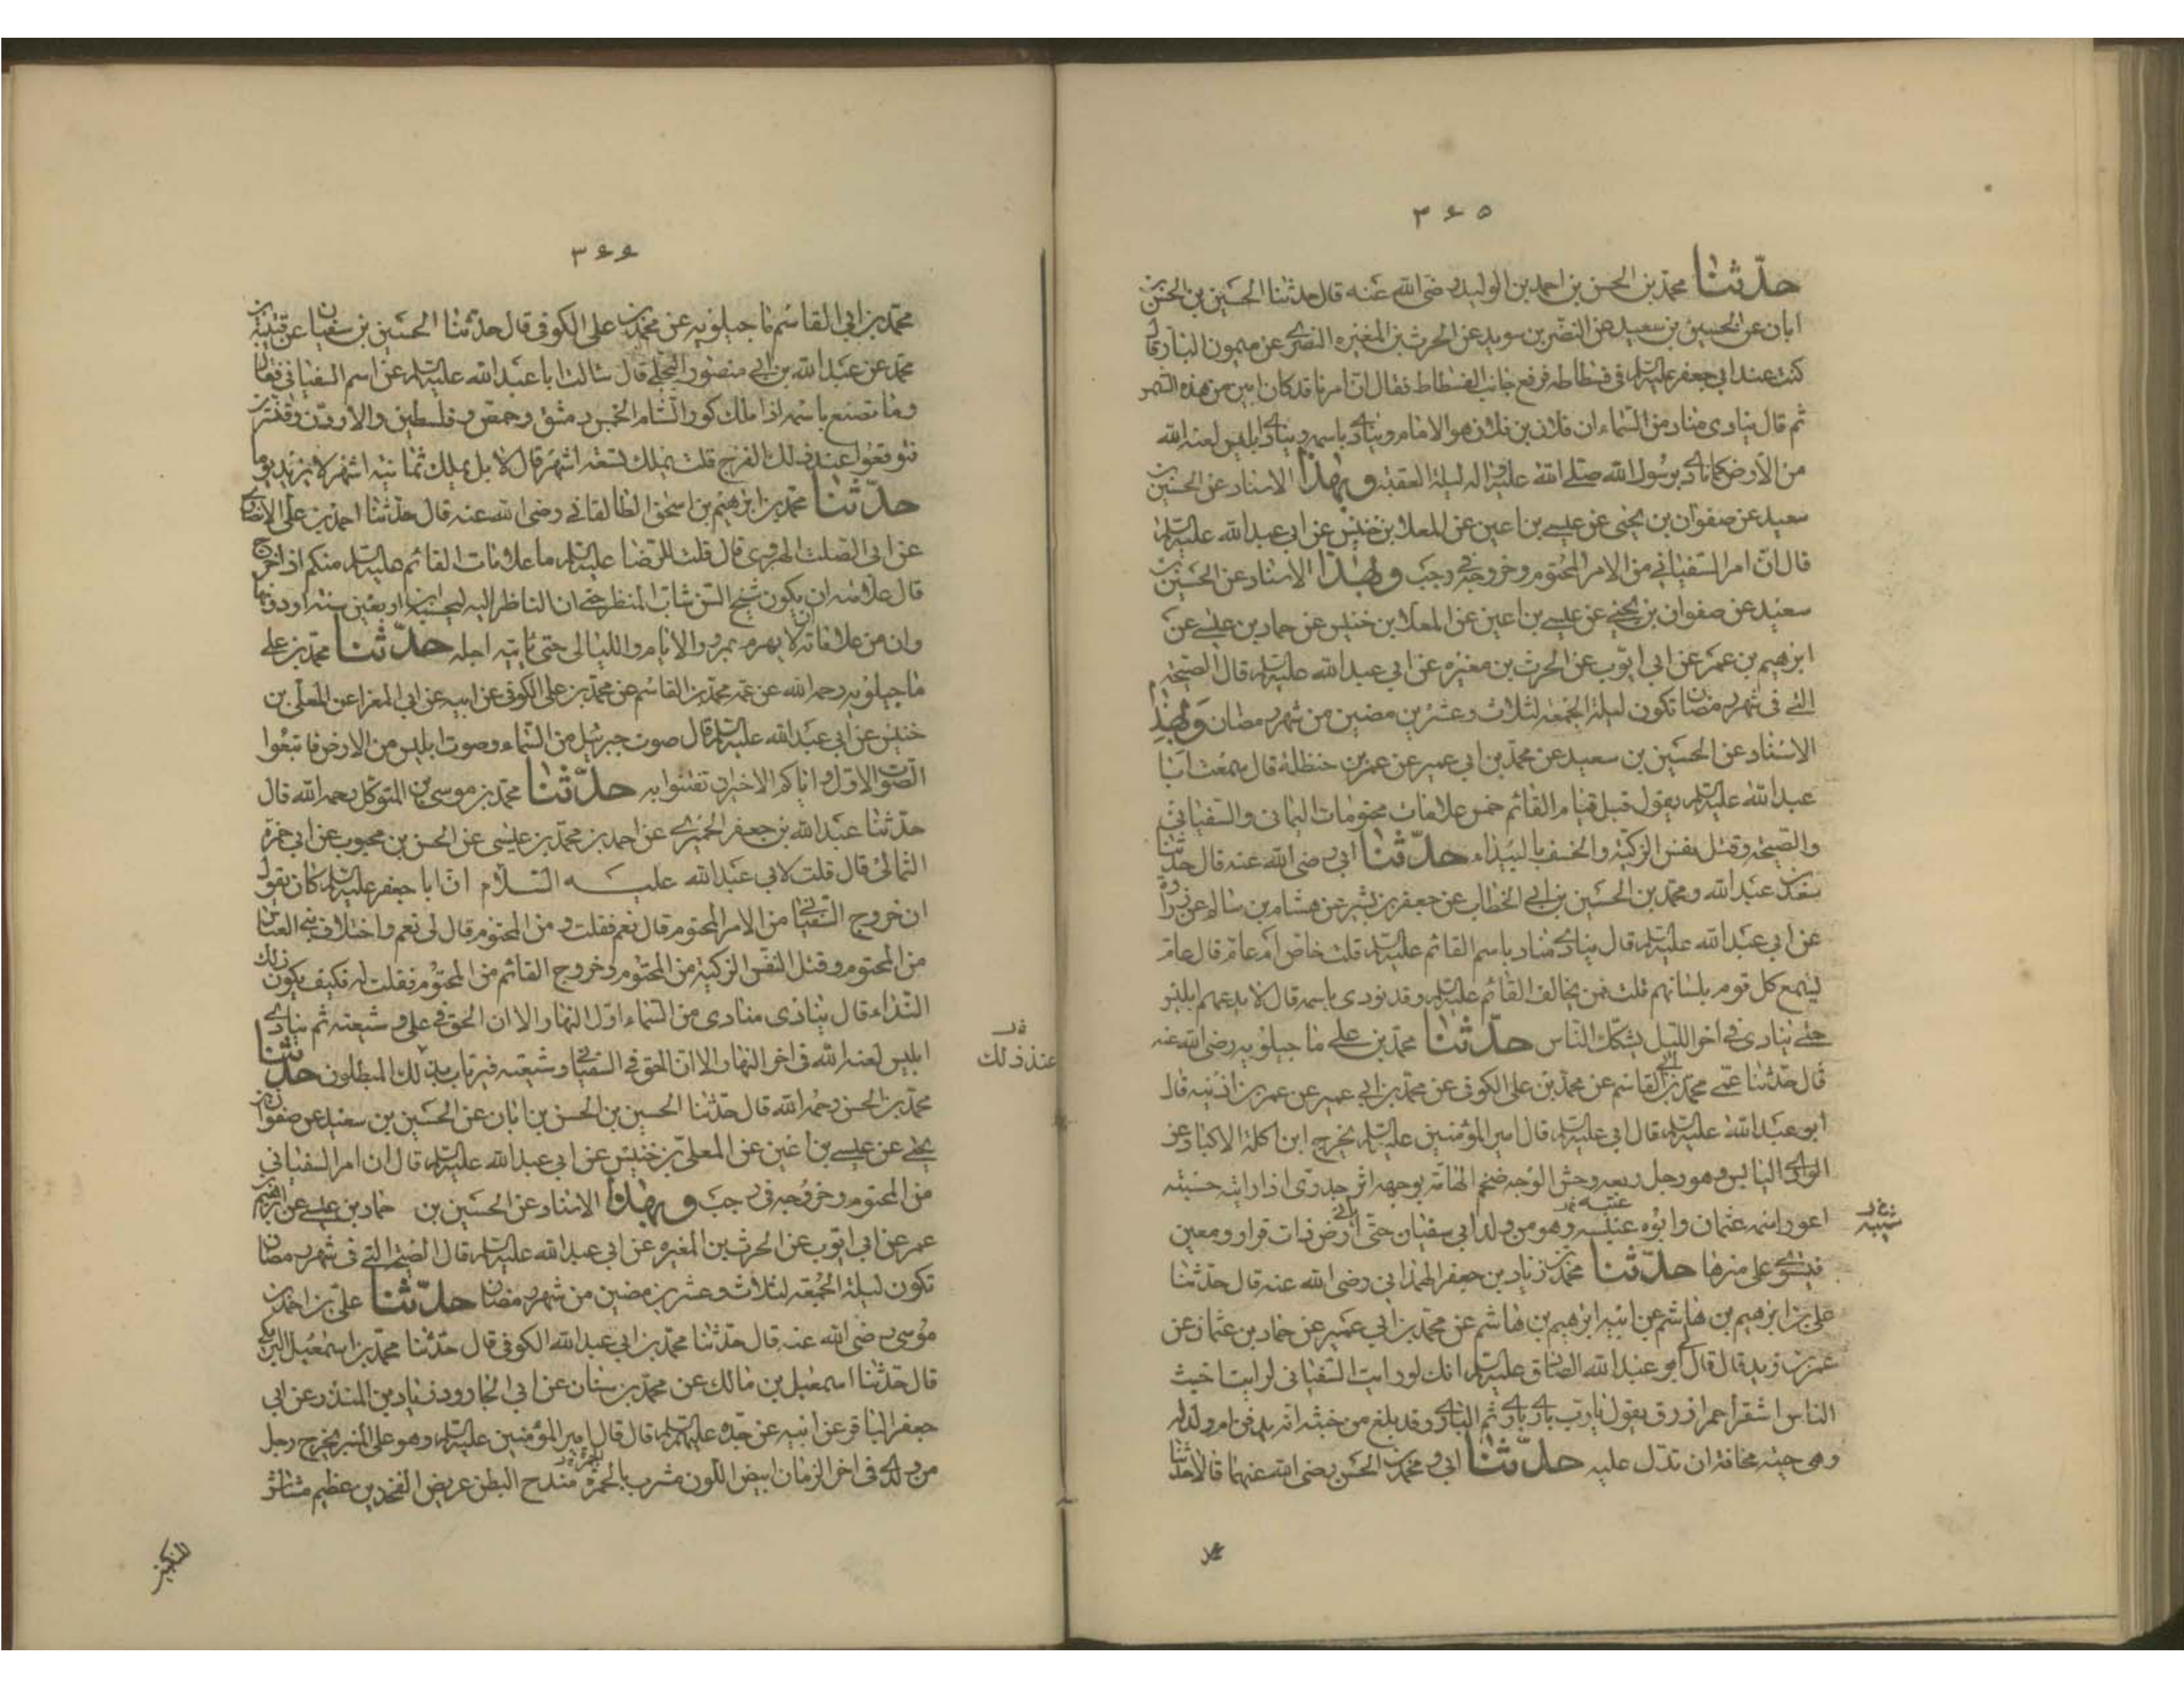 ٣٦٥
حدّثنا محمّد بن الحسن بن احمد بن الوليد رضى الله عنه قال حدثنا الحسين بن الحسن بن
ابان عن الحسين بن سعيد عن النضر بن سويد عن الحرث بن المغيره النصرى عن ميمون البان قال
كنت عند ابى جعفر عليه السلم فى فسطاطه فرفع جانب الفسطاط فقال ان امرنا قد كان ابين من هذه الشمس
ثم قال ينادى مناد من السّماء ان فلان بن فلان هو الامام وينادى باسمه وينادى ابليس لعنه الله
من الأرض كما نادى برسول الله صلى الله عليه واله ليلة العقبة وبهذا الاسناد عن الحسين بن
سعيد عن صفوان بن يحيى عن عيسى بن اعين عن المعلا بن خنيس عن ابى عبد الله عليه السلم
قال ان امر السفيانى من الامر المحتوم وخروجه فى رجب وبهذا الاسناد عن الحسين بن
سعيد عن صفوان بن يحيى عن عيسى بن اعين عن المعلا بن خنيس عن حماد بن عيسى عن
ابرهيم بن عمر عن ابى ايوب عن الحرث بن مغيره عن ابى عبد الله عليه السلم قال الصيحة
التى فى شهر رمضان تكون ليلة الجمعة لثلاث وعشرين مضين من شهر رمضان وبهذا
الاسناد عن الحسين بن سعيد عن محمد بن ابى عمير عن عمر بن حنظلة قال سمعت ابا
عبد الله عليه السلم يقول قبل قيام القائم خمس علامات محتومات اليمانى والسفيانى
والصيحة وقتل نفس الزكية والخسف بالبيداء حدّثنا ابى رضى الله عنه قال حدثنا
سعد بن عبد الله ومحمد بن الحسين بن ابى الخطاب عن جعفر بن بشير عن هشام بن سالم عن زرارة
عن ابى عبد الله عليه السلم قال ينادى مناد باسم القائم عليه السلم قلت خاص ام عام قال عام
يسمع كل قوم بلسانهم قلت فمن يخالف القائم عليه السلم وقد نودى باسمه قال لا يدعهم ابليس
حتى ينادى فى اخر الليل يشكك الناس حدّثنا محمد بن على ماجيلويه رضى الله عنه
قال حدثنا عمى محمد بن ابى القاسم عن محمد بن على الكوفى عن محمد بن ابى عمير عن عمر بن اذينه قال
ابو عبد الله عليه السلم قال ابى عليه السلم قال امير المؤمنين عليه السلم يخرج ابن اكلة الاكباد عن
الوادى اليابس وهو رجل ربعه وحش الوجه ضخم الهامة بوجهه اثر جدرى اذا رايته حسبته
اعور اسمه عثمان وابوه عنبسه وهو من ولد ابى سفيان حتى ياتى ارض ذات قرار ومعين
عتبه
فيستوى على منبرها حدّثنا محمد بن زياد بن جعفر الهمدانى رضى الله عنه قال حدثنا
على بن ابرهيم بن هاشم عن ابيه ابرهيم بن هاشم عن محمد بن ابى عمير عن حماد بن عثمان عن
عمر بن يزيد قال قال ابو عبد الله الصادق عليه السلم انك لو رايت السفيانى لرايت اخبث
الناس اشقر احمر ازرق يقول يا رب ثم النار وقد بلغ من خبثه انه يدفن ام ولد له
وهى حيته مخافة ان تدل عليه حدّثنا ابى ومحمد بن الحسن رضى الله عنهما قالا حدثنا
٣٦٦
محمد بن ابى القاسم ماجيلويه عن محمد بن على الكوفى قال حدثنا الحسين بن سفيان عن قتيبة بن
محمد عن عبد الله بن ابى منصور البجلى قال سالت ابا عبد الله عليه السلم عن اسم السفيانى فقال
وما تصنع باسمه اذا ملك كور الشام الخمس دمشق وحمص وفلسطين والاردن وقنسرين
فتوقعوا عند ذلك الفرج قلت يملك تسعة اشهر قال لا بل يملك ثمانية اشهر لا يزيد يوما
حدّثنا محمد بن ابرهيم بن اسحق الطالقانى رضى الله عنه قال حدثنا احمد بن على الانصارى
عن ابى الصلت الهروى قال قلت للرضا عليه السلم ما علامات القائم عليه السلم منكم اذا خرج
قال علامته ان يكون شيخ السن شاب المنظر حتى ان الناظر اليه ليحسبه ابن اربعين سنة او دونها
وان من علاماته ان لا يهرم بمرور الايام والليالى حتى ياتيه اجله حدّثنا محمد بن على
ماجيلويه رحمه الله عن عمه محمد بن القاسم عن محمد بن على الكوفى عن ابيه عن ابى المغرا عن المعلى بن
خنيس عن ابى عبد الله عليه السلم قال صوت جبرئيل من السماء وصوت ابليس من الارض فاتبعوا
الصوت الاول واياكم الاخير ان تفتنوا به حدّثنا محمد بن موسى بن المتوكل رحمه الله قال
حدثنا عبد الله بن جعفر الحميرى عن احمد بن محمد بن عيسى عن الحسن بن محبوب عن ابى حمزة
الثمالى قال قلت لابى عبد الله عليه السلام ان ابا جعفر عليه السلم كان يقول
ان خروج السفيانى من الامر المحتوم قال نعم فقلت ومن المحتوم قال لى نعم واختلاف بنى العباس
من المحتوم وقتل النفس الزكية من المحتوم وخروج القائم من المحتوم فقلت له فكيف يكون ذلك
النداء قال ينادى منادى من السماء اول النهار الا ان الحق فى على وشيعته ثم ينادى
ابليس لعنه الله فى اخر النهار الا ان الحق فى السفيانى وشيعته فيرتاب بذلك المبطلون حدّثنا
عند ذلك
محمد بن الحسن رحمه الله قال حدثنا الحسين بن الحسن بن ابان عن الحسين بن سعيد عن صفوان بن
يحيى عن عيسى بن اعين عن المعلى بن خنيس عن ابى عبد الله عليه السلم قال ان امر السفيانى
من المحتوم وخروجه فى رجب وبهذا الاسناد عن الحسين بن حماد بن عيسى عن ابرهيم بن
عمر عن ابى ايوب عن الحرث بن المغيره عن ابى عبد الله عليه السلم قال الصيحة التى فى شهر رمضان
تكون ليلة الجمعة لثلاث وعشرين مضين من شهر رمضان حدّثنا على بن احمد بن
موسى رضى الله عنه قال حدثنا محمد بن ابى عبد الله الكوفى قال حدثنا محمد بن اسمعيل البرمكى
قال حدثنا اسمعيل بن مالك عن محمد بن سنان عن ابى الجارود زياد بن المنذر عن ابى
جعفر الباقر عن ابيه عن جده عليهم السلم قال قال امير المؤمنين عليه السلم وهو على المنبر يخرج رجل
من ولدى فى اخر الزمان ابيض اللون مشرب بالحمرة مندح البطن عريض الفخذين عظيم مشاش
المنكبين